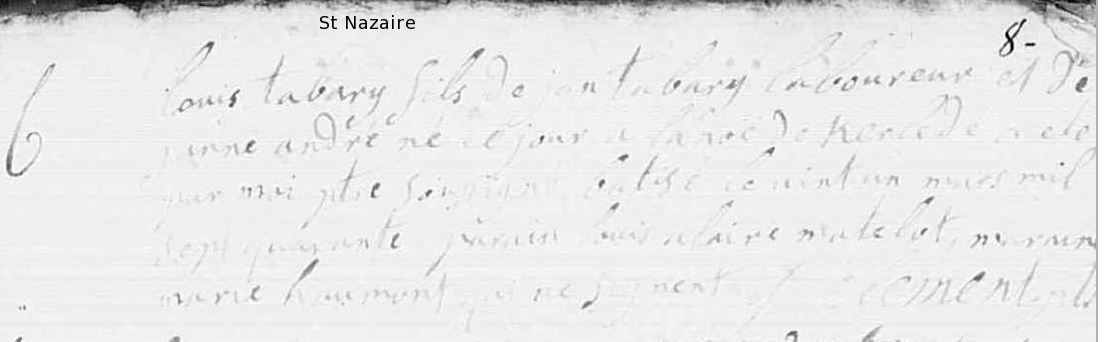 St Nazaire
8-
6 louis tabary fils de jan tabary laboureur et de
janne andré né ce jour a la noë de Kerlede a ete
par moi ptre soussigné batisé le vint un mars mil
sept quarante parain louis alaire matelot, maraine
marie haumont qui ne signent clement ptre